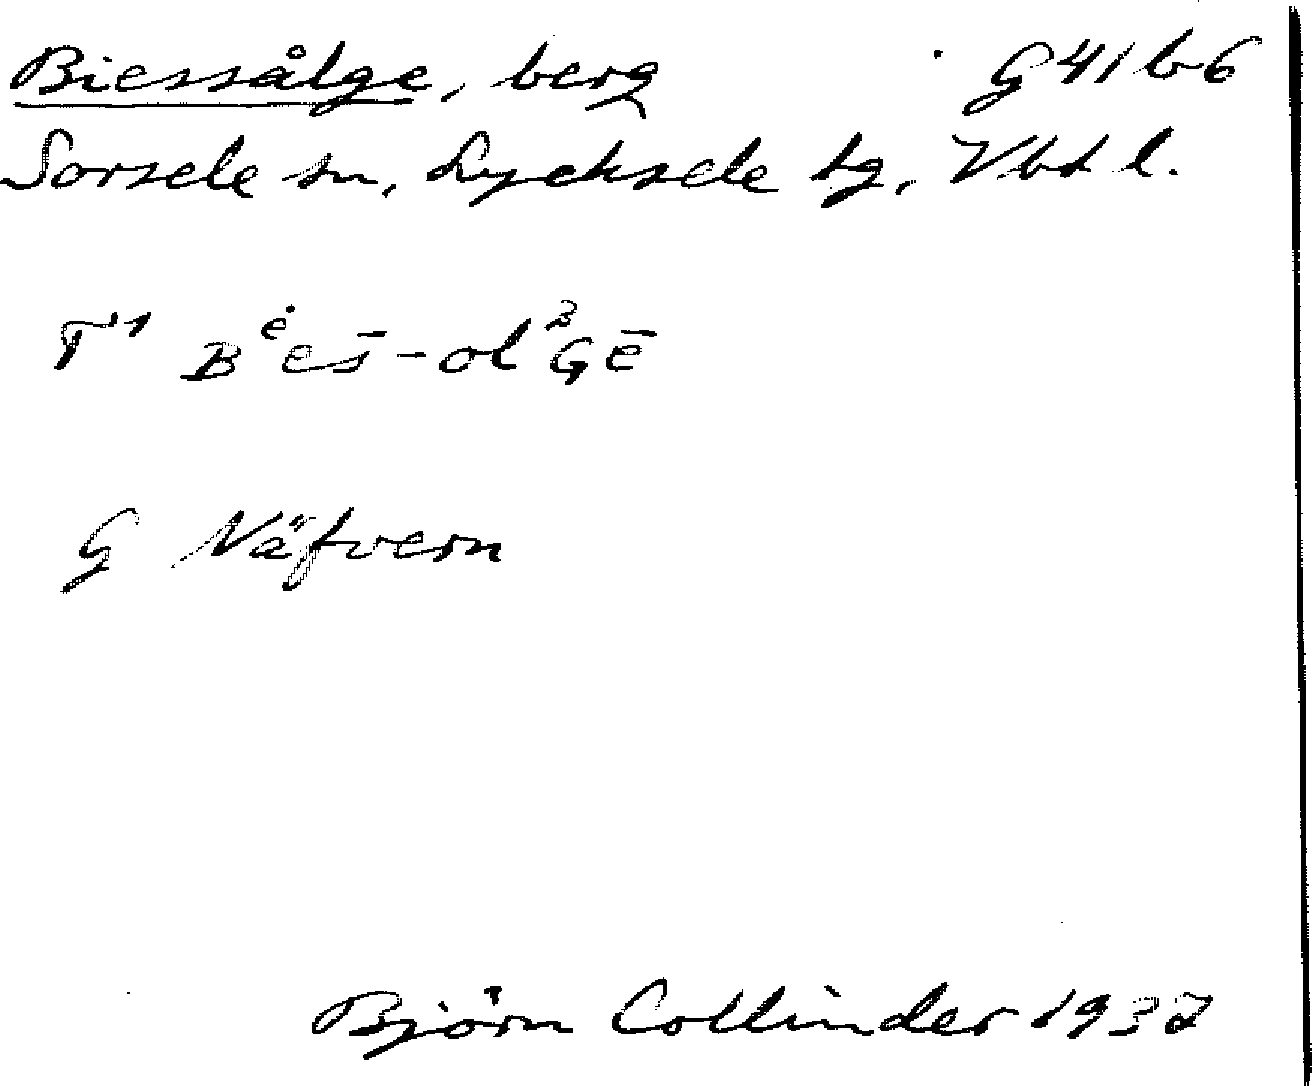 Biessålge, berg G41b6
Sorsele sn, Lycksele tg, Vbt l.
T1 Bėes̄-olᶾGē
G Näfvern
Björn Collinder 1937